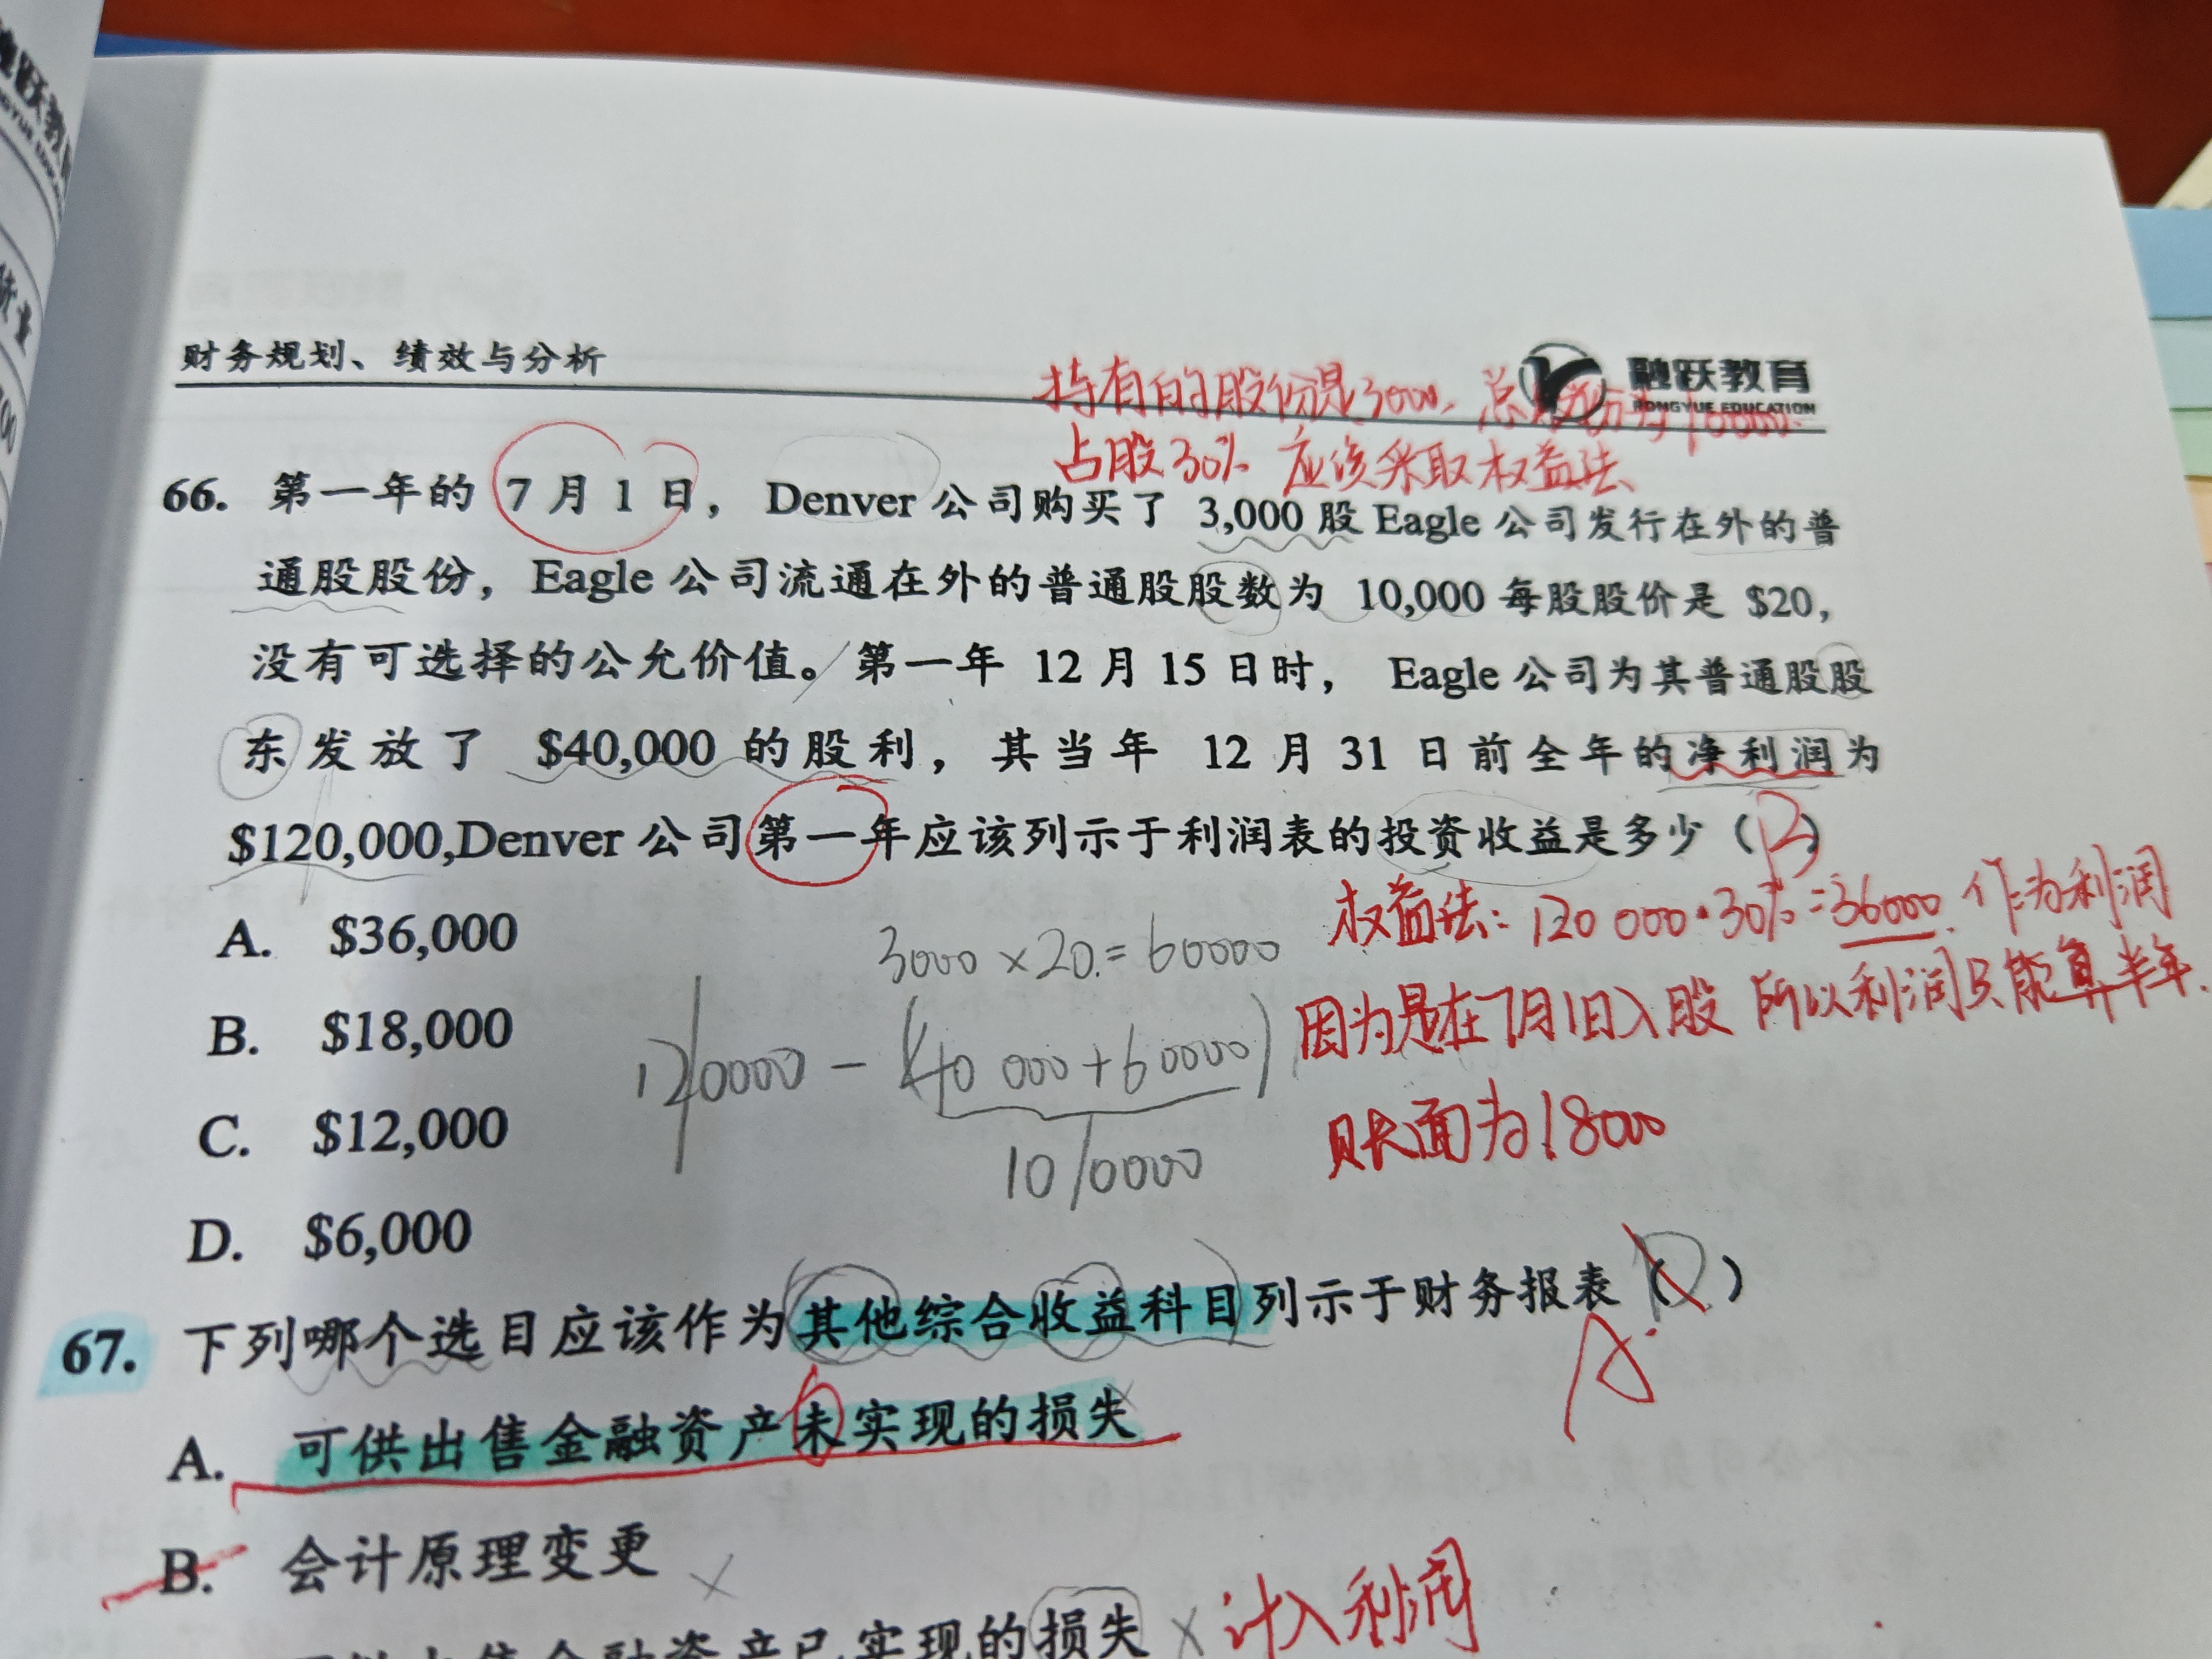 财务规划、绩效与分析
融跃教育
RONGYUE EDUCATION
持有的股份是3000, 总股份为10000.
占股30% 应该采取权益法、
66. 第一年的 7 月 1 日， Denver 公司购买了 3,000 股 Eagle 公司发行在外的普
通股股份，Eagle 公司流通在外的普通股股数为 10,000 每股股价是 $20，
没有可选择的公允价值。第一年 12 月 15 日时， Eagle 公司为其普通股股
东发放了 $40,000 的股利，其当年 12 月 31 日前全年的净利润为
$120,000,Denver 公司第一年应该列示于利润表的投资收益是多少（B）
权益法: 120 000·30%=36000. 作为利润
因为是在7月1日入股 所以利润只能算半年.
账面为18000
A. $36,000
3000 × 20.= 60000
B. $18,000
120000 - (40 000+60000)
C. $12,000
100000
D. $6,000
67. 下列哪个选目应该作为其他综合收益科目列示于财务报表（D）
A.
A. 可供出售金融资产未实现的损失 ×
B. 会计原理变更 ×
金融资产已实现的损失 × 计入利润